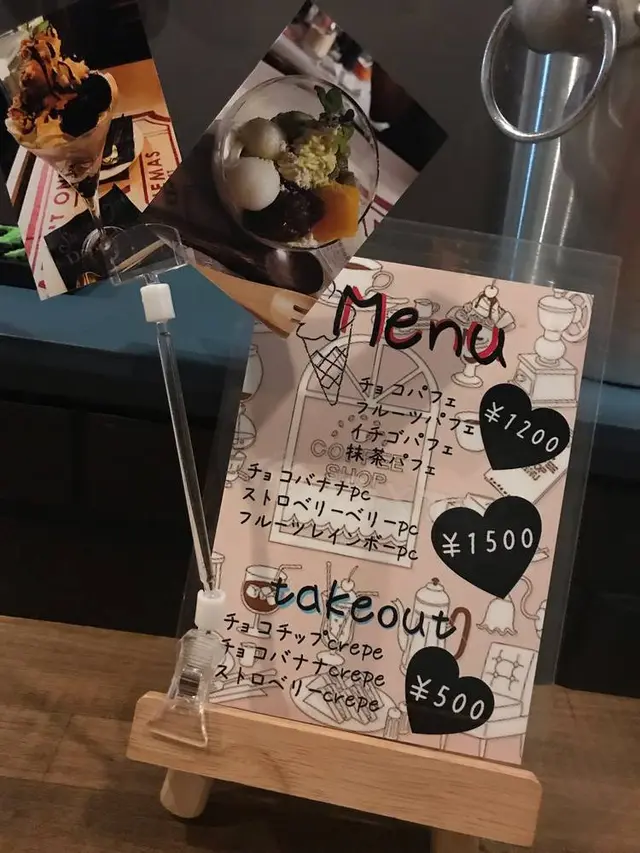 Menu
チョコパフェ
フルーツパフェ
イチゴパフェ
抹茶パフェ
¥1200
COFFEE
SHOP
チョコバナナpc
ストロベリーベリーpc
フルーツレインボーpc
¥1500
takeout
チョコチップcrepe
チョコバナナcrepe
ストロベリーcrepe
¥500